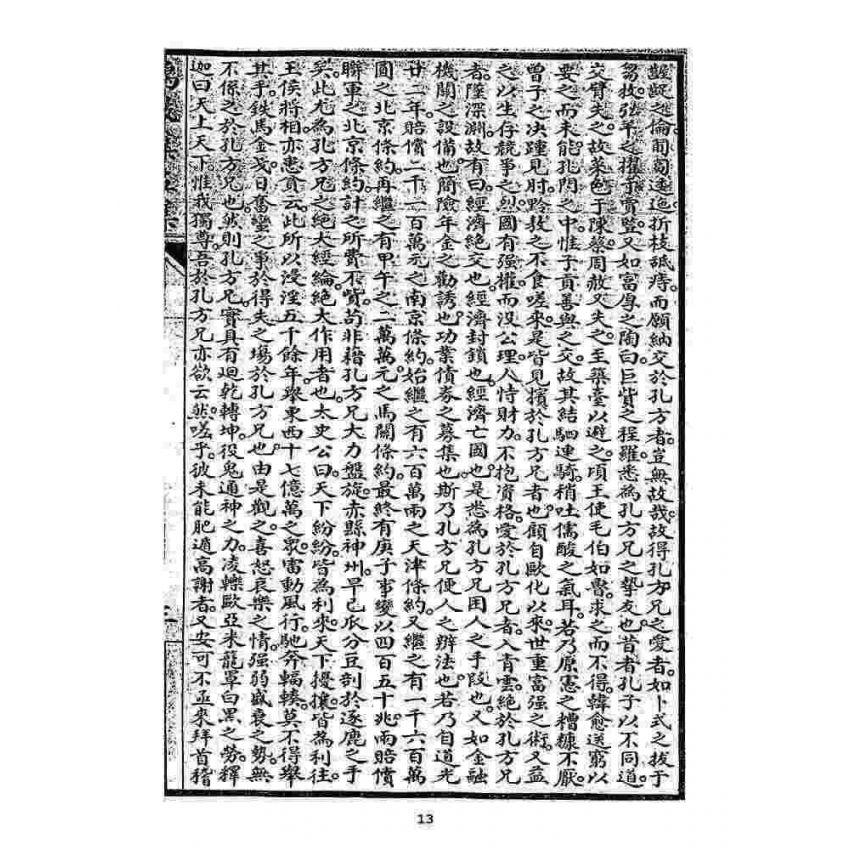 齷齪之倫。匍匐逶迤。折枝舐痔。而願納交於孔方者。豈無故哉。故得孔方兄之愛者。如卜式之拔于
芻牧。弘羊之擢于賈豎。又如富厚之陶白。巨貲之程羅。悉為孔方兄之摯友也。昔者孔子以不同道。
交臂失之。故菜色于陳蔡。周赧又失之。至築臺以避之。項王使毛伯如魯。求之而不得。韓愈送窮以
要之而未能。孔門之中。惟子貢善與之交。故其結駟連騎。稍吐儒酸之氣耳。若乃原憲之糟糠不厭。
曾子之決踵見肘。黔敖之不食嗟來。是皆見擯於孔方兄者也。顧自歐化以來。世重富强之術。又益
之以生存競爭之烈。國有强權。而沒公理。人恃財力。不抱資格。愛於孔方兄者。入青雲。絕於孔方兄
者。墜深淵。故有曰經濟絕交也。經濟封鎖也。經濟亡國也。是悉為孔方兄困人之手段也。又如金融
機關之設備也。簡險年金之勸誘也。功業債券之募集也。斯乃孔方兄便人之辦法也。若乃自道光
廿二年。賠償二千一百萬元之南京條約。始繼之有六百萬兩之天津條約。又繼之有一千六百萬
圓之北京條約。再繼之有甲午之二萬萬元之馬關條約。最終有庚子事變以四百五十兆兩賠償
聯軍之北京條約。計之所費不貲。苟非藉孔方兄大力盤旋。赤縣神州。早已瓜分豆剖於逐鹿之手
矣。此尤為孔方兄之絕大經綸。絕大作用者也。太史公曰。天下紛紛。皆為利來。天下擾攘。皆為利往。
王侯將相。亦患貪云。此所以浸淫五千餘年。舉東西十七億萬之眾。雷動風行。馳奔輻輳。莫不得舉
其手。鉄馬金戈。日奮蠻之爭於得失之場於孔方兄也。由是觀之。喜怒哀樂之情。强弱盛衰之勢。無
不係之於孔方兄也。然則孔方兄。實具有迴乾轉坤。役鬼通神之力。凌轢歐亞米。籠罩白黑之勞。釋
迦曰。天上天下。惟我獨尊。吾於孔方兄亦欲云然。嗟乎。彼未能肥遁高謝者。又安可不亟來拜首稽
13